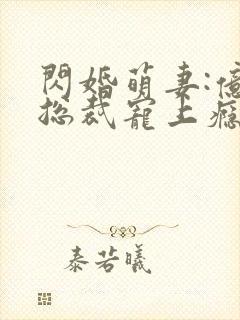 閃婚萌妻:億
總裁寵上癮
秦若曦